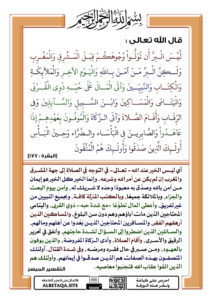 بِسْمِ اللَّهِ الرَّحْمَٰنِ الرَّحِيمِ
قال الله تعالى :
لَّيْسَ الْبِرَّ أَن تُوَلُّوا وُجُوهَكُمْ قِبَلَ الْمَشْرِقِ وَالْمَغْرِبِ
وَلَٰكِنَّ الْبِرَّ مَنْ آمَنَ بِاللَّهِ وَالْيَوْمِ الْآخِرِ وَالْمَلَائِكَةِ
وَالْكِتَابِ وَالنَّبِيِّينَ وَآتَى الْمَالَ عَلَىٰ حُبِّهِ ذَوِي الْقُرْبَىٰ
وَالْيَتَامَىٰ وَالْمَسَاكِينَ وَابْنَ السَّبِيلِ وَالسَّائِلِينَ وَفِي
الرِّقَابِ وَأَقَامَ الصَّلَاةَ وَآتَى الزَّكَاةَ وَالْمُوفُونَ بِعَهْدِهِمْ إِذَا
عَاهَدُوا وَالصَّابِرِينَ فِي الْبَأْسَاءِ وَالضَّرَّاءِ وَحِينَ الْبَأْسِ
أُولَٰئِكَ الَّذِينَ صَدَقُوا وَأُولَٰئِكَ هُمُ الْمُتَّقُونَ
[البقرة : ١٧٧]
أي ليس الخير عند الله -تعالى- في التوجه في الصلاة إلى جهة المشرق
والمغرب إن لم يكن عن أمر الله وشرعه، وإنما الخير كل الخير هو إيمان
من آمن بالله وصدق به معبودًا وحدَه لا شريك له، وآمن بيوم البعث
والجزاء، وبالملائكة جميعًا، وبالكتب المنزلة كافة، وبجميع النبيين
من غير تفريق، وأعطى المال تطوُّعًا -مع شدة حبه- ذوي القربى، واليتامى
المحتاجين الذين مات آباؤهم وهم دون سن البلوغ، والمساكين الذين
أرهقهم الفقر، والمسافرين المحتاجين الذين بَعُدوا عن أهلهم ومالهم،
والسائلين الذين اضطروا إلى السؤال لشدة حاجتهم، وأنفق في تحرير
الرقيق والأسرى، وأقام الصلاة، وأدى الزكاة المفروضة، والذين يوفون
بالعهود، ومن صبر في حال فقره ومرضه، وفي شدة القتال. أولئك
المتصفون بهذه الصفات هم الذين صدقوا في إيمانهم، وأولئك هم
الذين اتقَوا عقاب الله فتجنبوا معاصيه.
التفسير الميسر
ALBETAQA.SITE